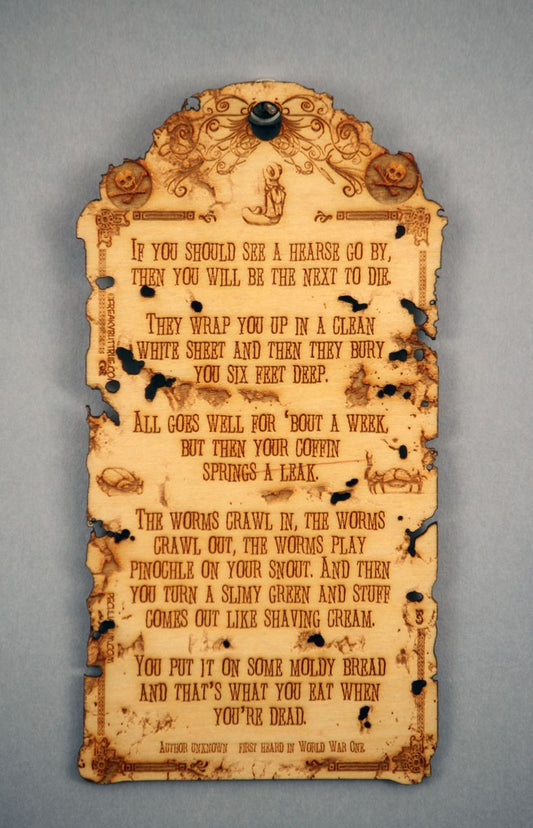 If you should see a hearse go by,
then you will be the next to die.
They wrap you up in a clean
white sheet and then they bury
you six feet deep.
All goes well for 'bout a week,
but then your coffin
springs a leak.
The worms crawl in, the worms
crawl out, the worms play
pinochle on your snout. And then
you turn a slimy green and stuff
comes out like shaving cream.
You put it on some moldy bread
and that's what you eat when
you're dead.
Author unknown first heard in World War One